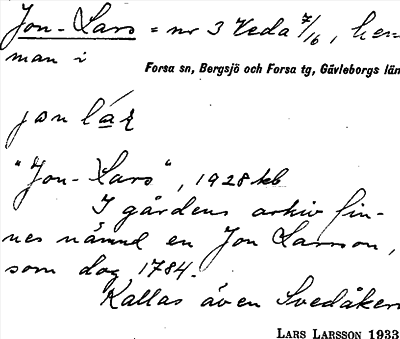 Jon-Lars = nr 3 Veda 7/16, hem
man i
Forsa sn, Bergsjö och Forsa tg, Gävleborgs län
jon lár
"Jon-Lars", 1928 kb
I gårdens arkiv fin-
nes nämnd en Jon Larsson,
som dog 1784.
Kallas även Svedåkern
LARS LARSSON 1933